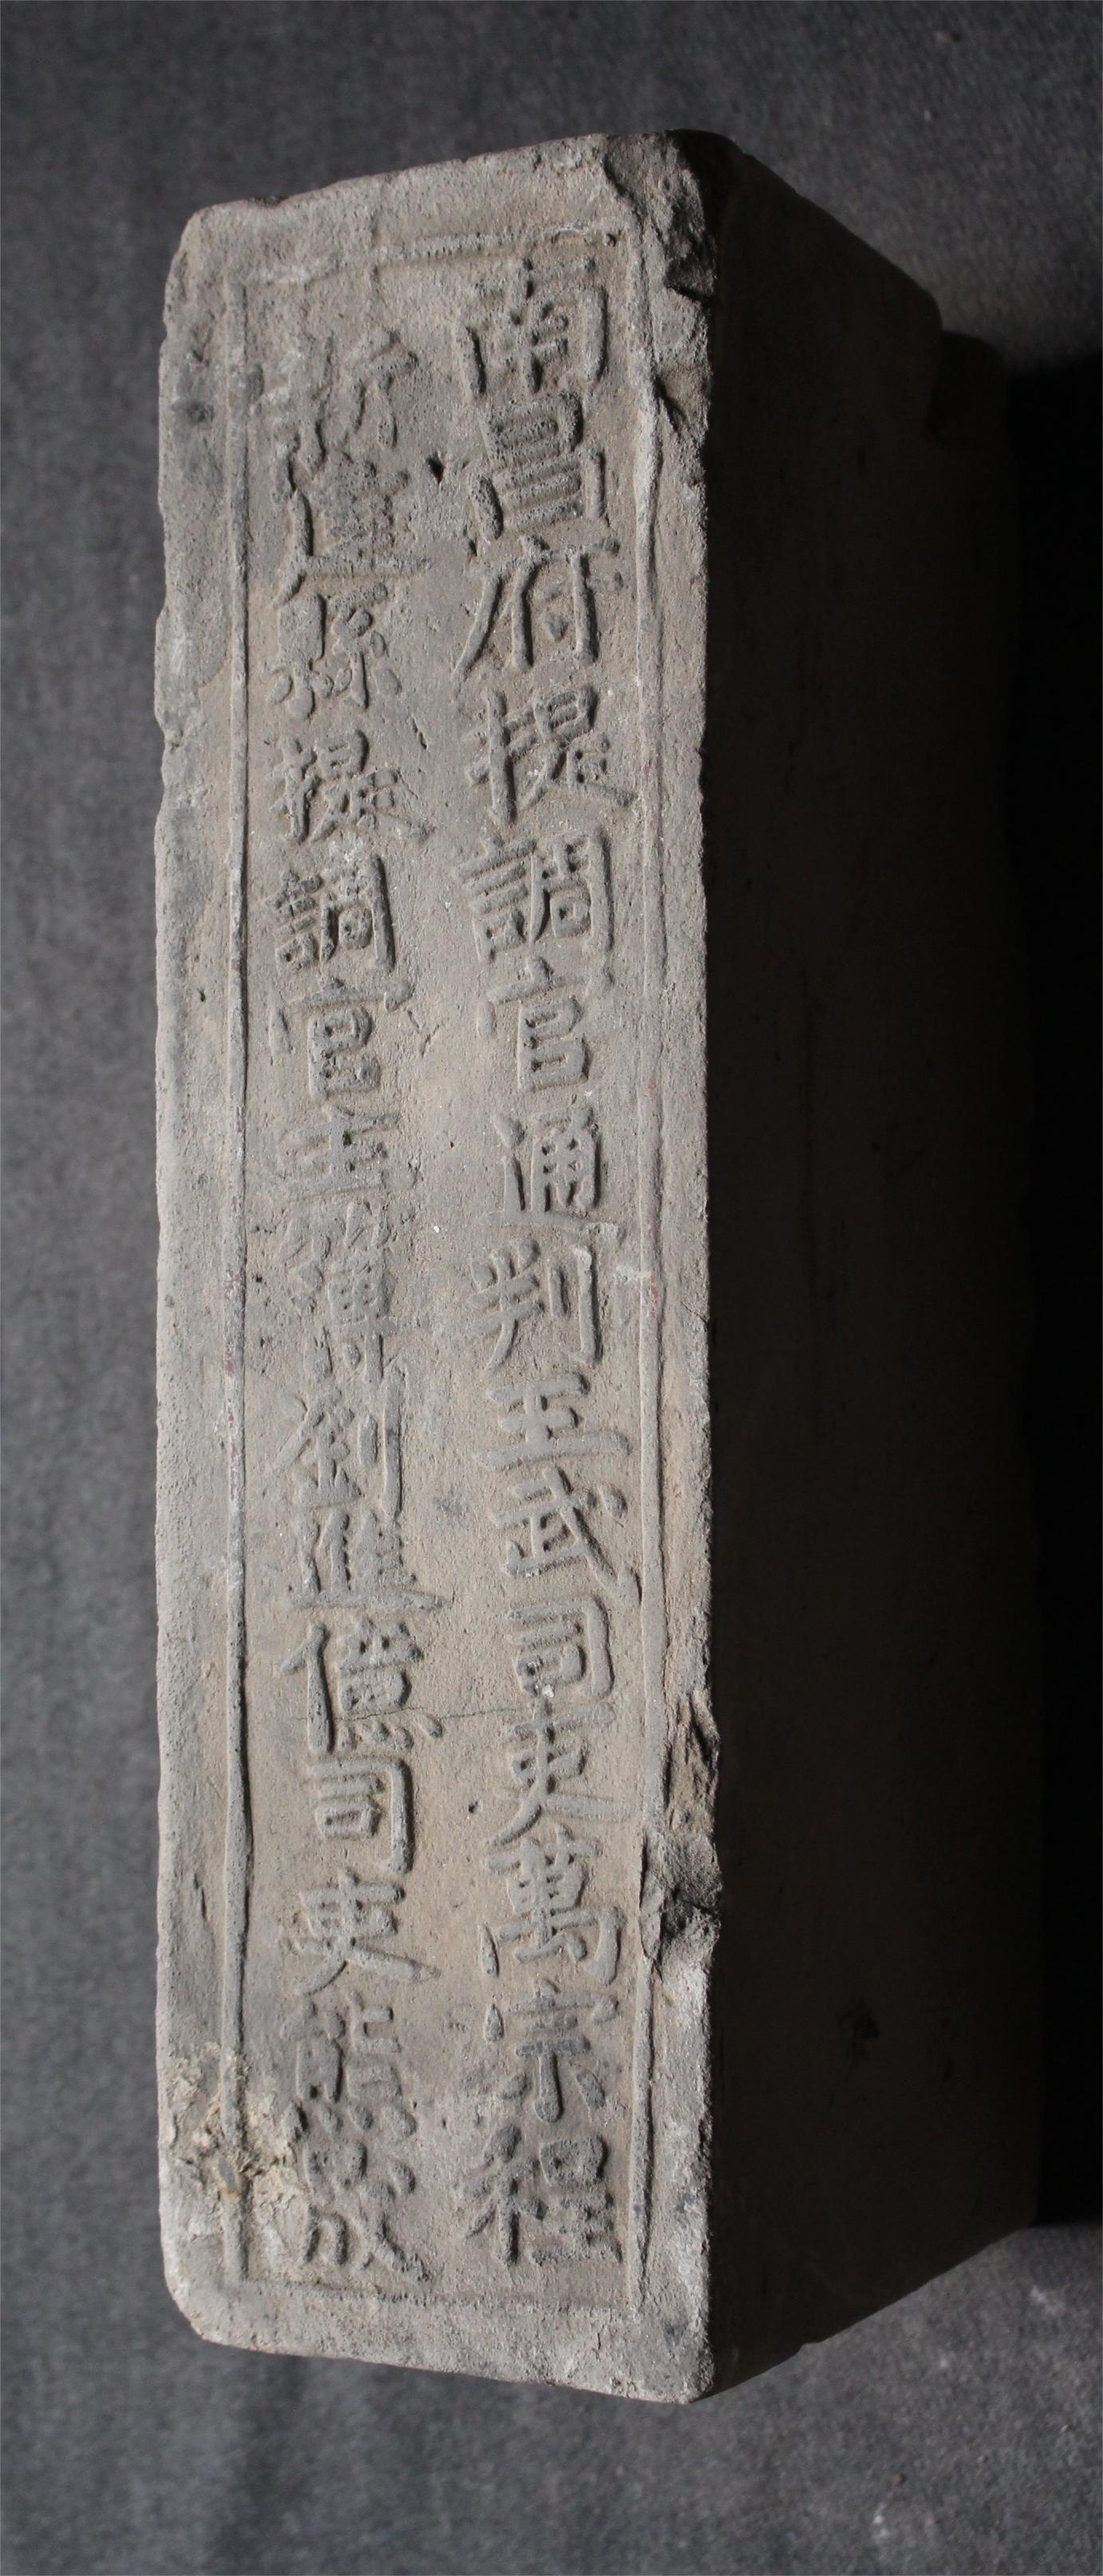 南昌府提調官通判王武司吏萬宗程
新建縣提調官主簿劉進億司吏熊照成